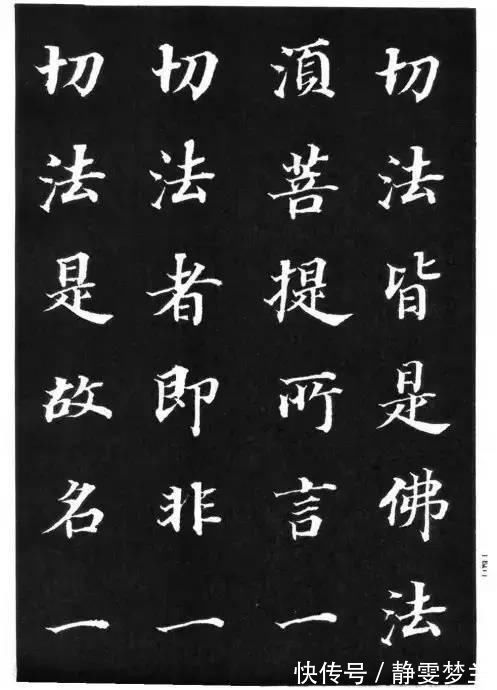 切法皆是佛法
須菩提所言一
切法者即非一
切法是故名一
快传号/静雯梦主